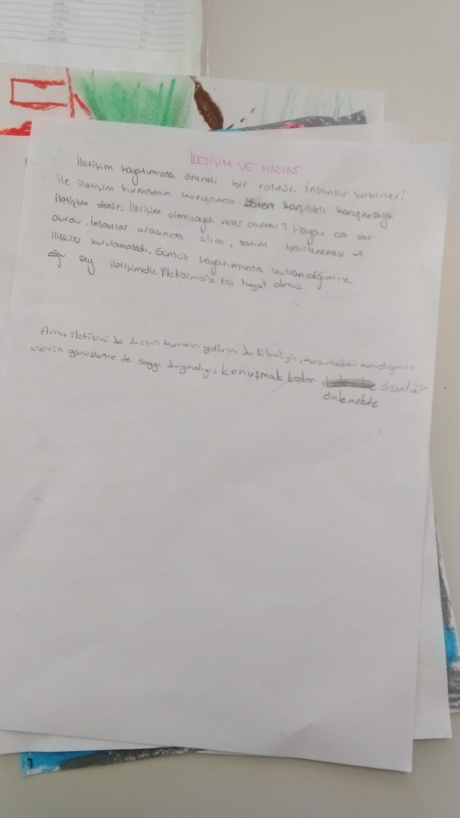 İLETİŞİM VE HAYAT
İletişim hayatımızda önemli bir roldür. İnsanlar birbirleri
ile iletişim kurmadan konuşamaz. karşılıklı konuşmaya
iletişim denir. İletişim olmasaydı nasıl olurdu? Hayat çok zor
olurdu. İnsanlar arasında alım, satım belirlenemez ve
ilişkiler kurulamazdı. Günlük hayatımızda kullandığımız
çoğu şey iletişimdir. İletişimsiz bir hayat olmaz.
Ama iletişimi de düzgün kurmanın yollarını da bilmeliyiz,
kişinin görüşlerine de saygı duymalıyız konuşmak kadar
dinlemekde